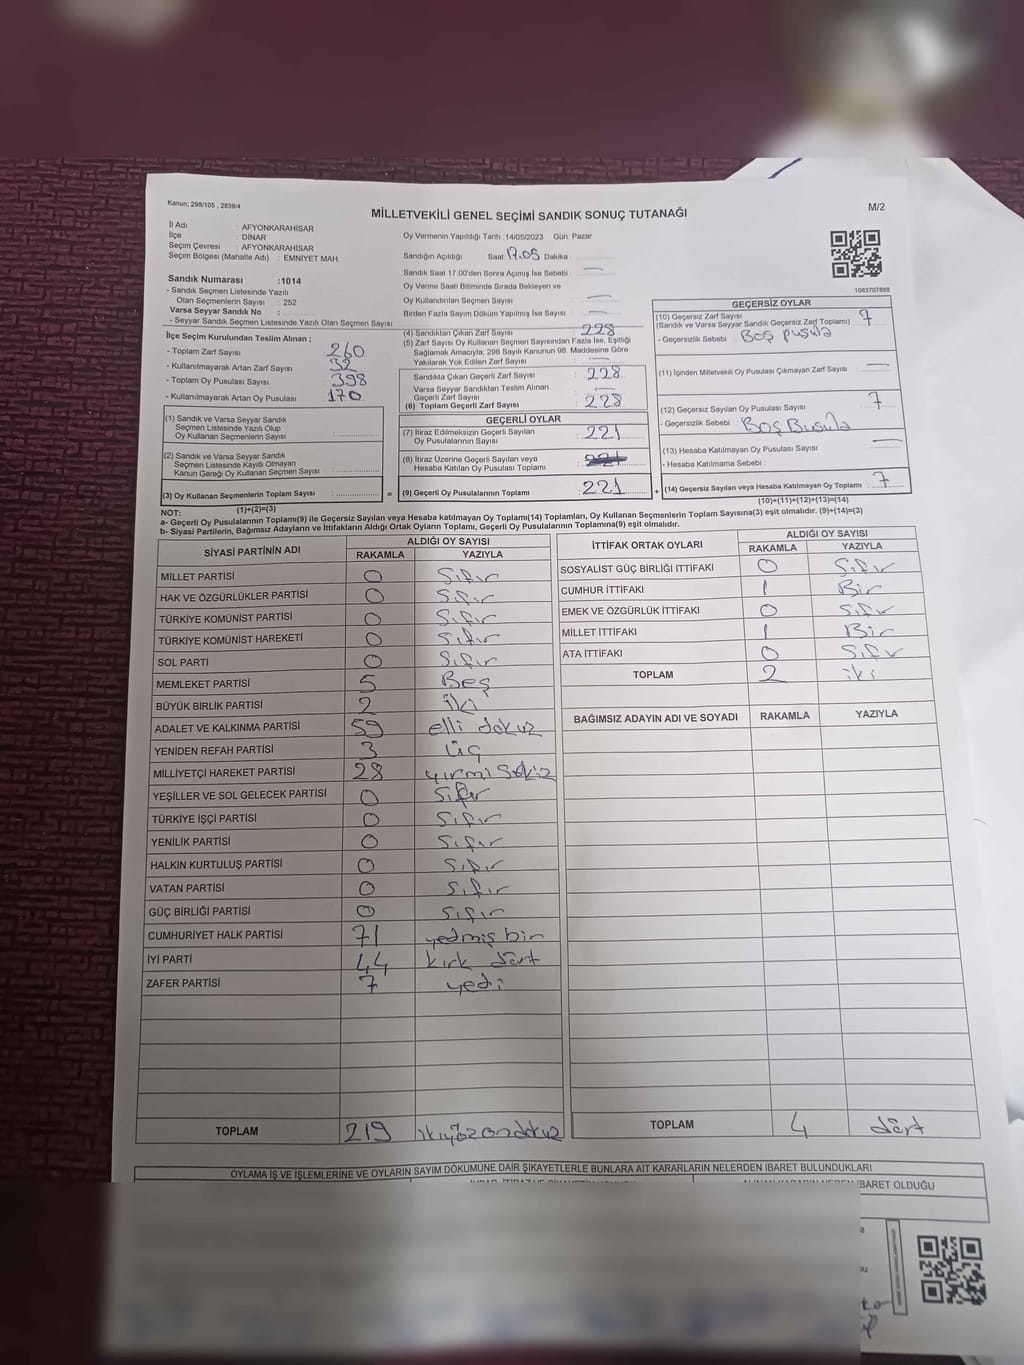 Kanun; 298/105 , 2839/4
MİLLETVEKİLİ GENEL SEÇİMİ SANDIK SONUÇ TUTANAĞI
M/2
İl Adı : AFYONKARAHİSAR
İlçe : DİNAR
Seçim Çevresi : AFYONKARAHİSAR
Seçim Bölgesi (Mahalle Adı) : EMNİYET MAH.
Sandık Numarası :1014
- Sandık Seçmen Listesinde Yazılı
Olan Seçmenlerin Sayısı : 252
Varsa Seyyar Sandık No :
- Seyyar Sandık Seçmen Listesinde Yazılı Olan Seçmen Sayısı
İlçe Seçim Kurulundan Teslim Alınan ;
- Toplam Zarf Sayısı : 260
- Kullanılmayarak Artan Zarf Sayısı : 32
- Toplam Oy Pusulası Sayısı : 398
- Kullanılmayarak Artan Oy Pusulası : 170
(1) Sandık ve Varsa Seyyar Sandık
Seçmen Listesinde Yazılı Olup
Oy Kullanan Seçmenlerin Sayısı :
(2) Sandık ve Varsa Seyyar Sandık
Seçmen Listesinde Kayıtlı Olmayan
Kanun Gereği Oy Kullanan Seçmen Sayısı :
(3) Oy Kullanan Seçmenlerin Toplam Sayısı :
(1)+(2)=(3)
Oy Vermenin Yapıldığı Tarih : 14/05/2023 Gün: Pazar
Sandığın Açıldığı Saat 17.05 Dakika
Sandık Saat 17:00'den Sonra Açılmış İse Sebebi : —
Oy Verme Saati Bitiminde Sırada Bekleyen ve
Oy Kullandırılan Seçmen Sayısı : —
Birden Fazla Sayım Döküm Yapılmış İse Sayısı : —
(4) Sandıktan Çıkan Zarf Sayısı : 228
(5) Zarf Sayısı Oy Kullanan Seçmen Sayısından Fazla İse, Eşitliği
Sağlamak Amacıyla, 298 Sayılı Kanunun 98. Maddesine Göre
Yakılarak Yok Edilen Zarf Sayısı : —
Sandıkta Çıkan Geçerli Zarf Sayısı : 228
Varsa Seyyar Sandıktan Teslim Alınan
Geçerli Zarf Sayısı : —
(6) Toplam Geçerli Zarf Sayısı : 228
GEÇERLİ OYLAR
(7) İtiraz Edilmeksizin Geçerli Sayılan
Oy Pusulalarının Sayısı : 221
(8) İtiraz Üzerine Geçerli Sayılan veya
Hesaba Katılan Oy Pusulası Toplamı :
= (9) Geçerli Oy Pusulalarının Toplamı : 221
1063707888
GEÇERSİZ OYLAR
(10) Geçersiz Zarf Sayısı : 7
(Sandık ve Varsa Seyyar Sandık Geçersiz Zarf Toplamı)
- Geçersizlik Sebebi : Boş pusula
(11) İçinden Milletvekili Oy Pusulası Çıkmayan Zarf Sayısı : —
(12) Geçersiz Sayılan Oy Pusulası Sayısı : 7
- Geçersizlik Sebebi : Boş Busula
(13) Hesaba Katılmayan Oy Pusulası Sayısı : —
- Hesaba Katılmama Sebebi :
+ (14) Geçersiz Sayılan veya Hesaba Katılmayan Oy Toplamı : 7
(10)+(11)+(12)+(13)=(14)
NOT:
a- Geçerli Oy Pusulalarının Toplamı(9) ile Geçersiz Sayılan veya Hesaba katılmayan Oy Toplamı(14) Toplamları, Oy Kullanan Seçmenlerin Toplam Sayısına(3) eşit olmalıdır. (9)+(14)=(3)
b- Siyasi Partilerin, Bağımsız Adayların ve İttifakların Aldığı Ortak Oyların Toplamı, Geçerli Oy Pusulalarının Toplamına(9) eşit olmalıdır.
SİYASİ PARTİNİN ADI ALDIĞI OY SAYISI
RAKAMLA YAZIYLA
MİLLET PARTİSİ 0 Sıfır
HAK VE ÖZGÜRLÜKLER PARTİSİ 0 Sıfır
TÜRKİYE KOMÜNİST PARTİSİ 0 Sıfır
TÜRKİYE KOMÜNİST HAREKETİ 0 Sıfır
SOL PARTİ 0 Sıfır
MEMLEKET PARTİSİ 5 Beş
BÜYÜK BİRLİK PARTİSİ 2 İki
ADALET VE KALKINMA PARTİSİ 59 elli dokuz
YENİDEN REFAH PARTİSİ 3 Üç
MİLLİYETÇİ HAREKET PARTİSİ 28 yirmi Sekiz
YEŞİLLER VE SOL GELECEK PARTİSİ 0 Sıfır
TÜRKİYE İŞÇİ PARTİSİ 0 Sıfır
YENİLİK PARTİSİ 0 Sıfır
HALKIN KURTULUŞ PARTİSİ 0 Sıfır
VATAN PARTİSİ 0 Sıfır
GÜÇ BİRLİĞİ PARTİSİ 0 Sıfır
CUMHURİYET HALK PARTİSİ 71 yedmiş bir
İYİ PARTİ 44 kırk dört
ZAFER PARTİSİ 7 yedi
TOPLAM 219 ikiyüzondokuz
İTTİFAK ORTAK OYLARI ALDIĞI OY SAYISI
RAKAMLA YAZIYLA
SOSYALİST GÜÇ BİRLİĞİ İTTİFAKI 0 Sıfır
CUMHUR İTTİFAKI 1 Bir
EMEK VE ÖZGÜRLÜK İTTİFAKI 0 Sıfır
MİLLET İTTİFAKI 1 Bir
ATA İTTİFAKI 0 Sıfır
TOPLAM 2 iki
BAĞIMSIZ ADAYIN ADI VE SOYADI RAKAMLA YAZIYLA
TOPLAM 4 dört
OYLAMA İŞ VE İŞLEMLERİNE VE OYLARIN SAYIM DÖKÜMÜNE DAİR ŞİKAYETLERLE BUNLARA AİT KARARLARIN NELERDEN İBARET BULUNDUKLARI
İBARET OLDUĞU